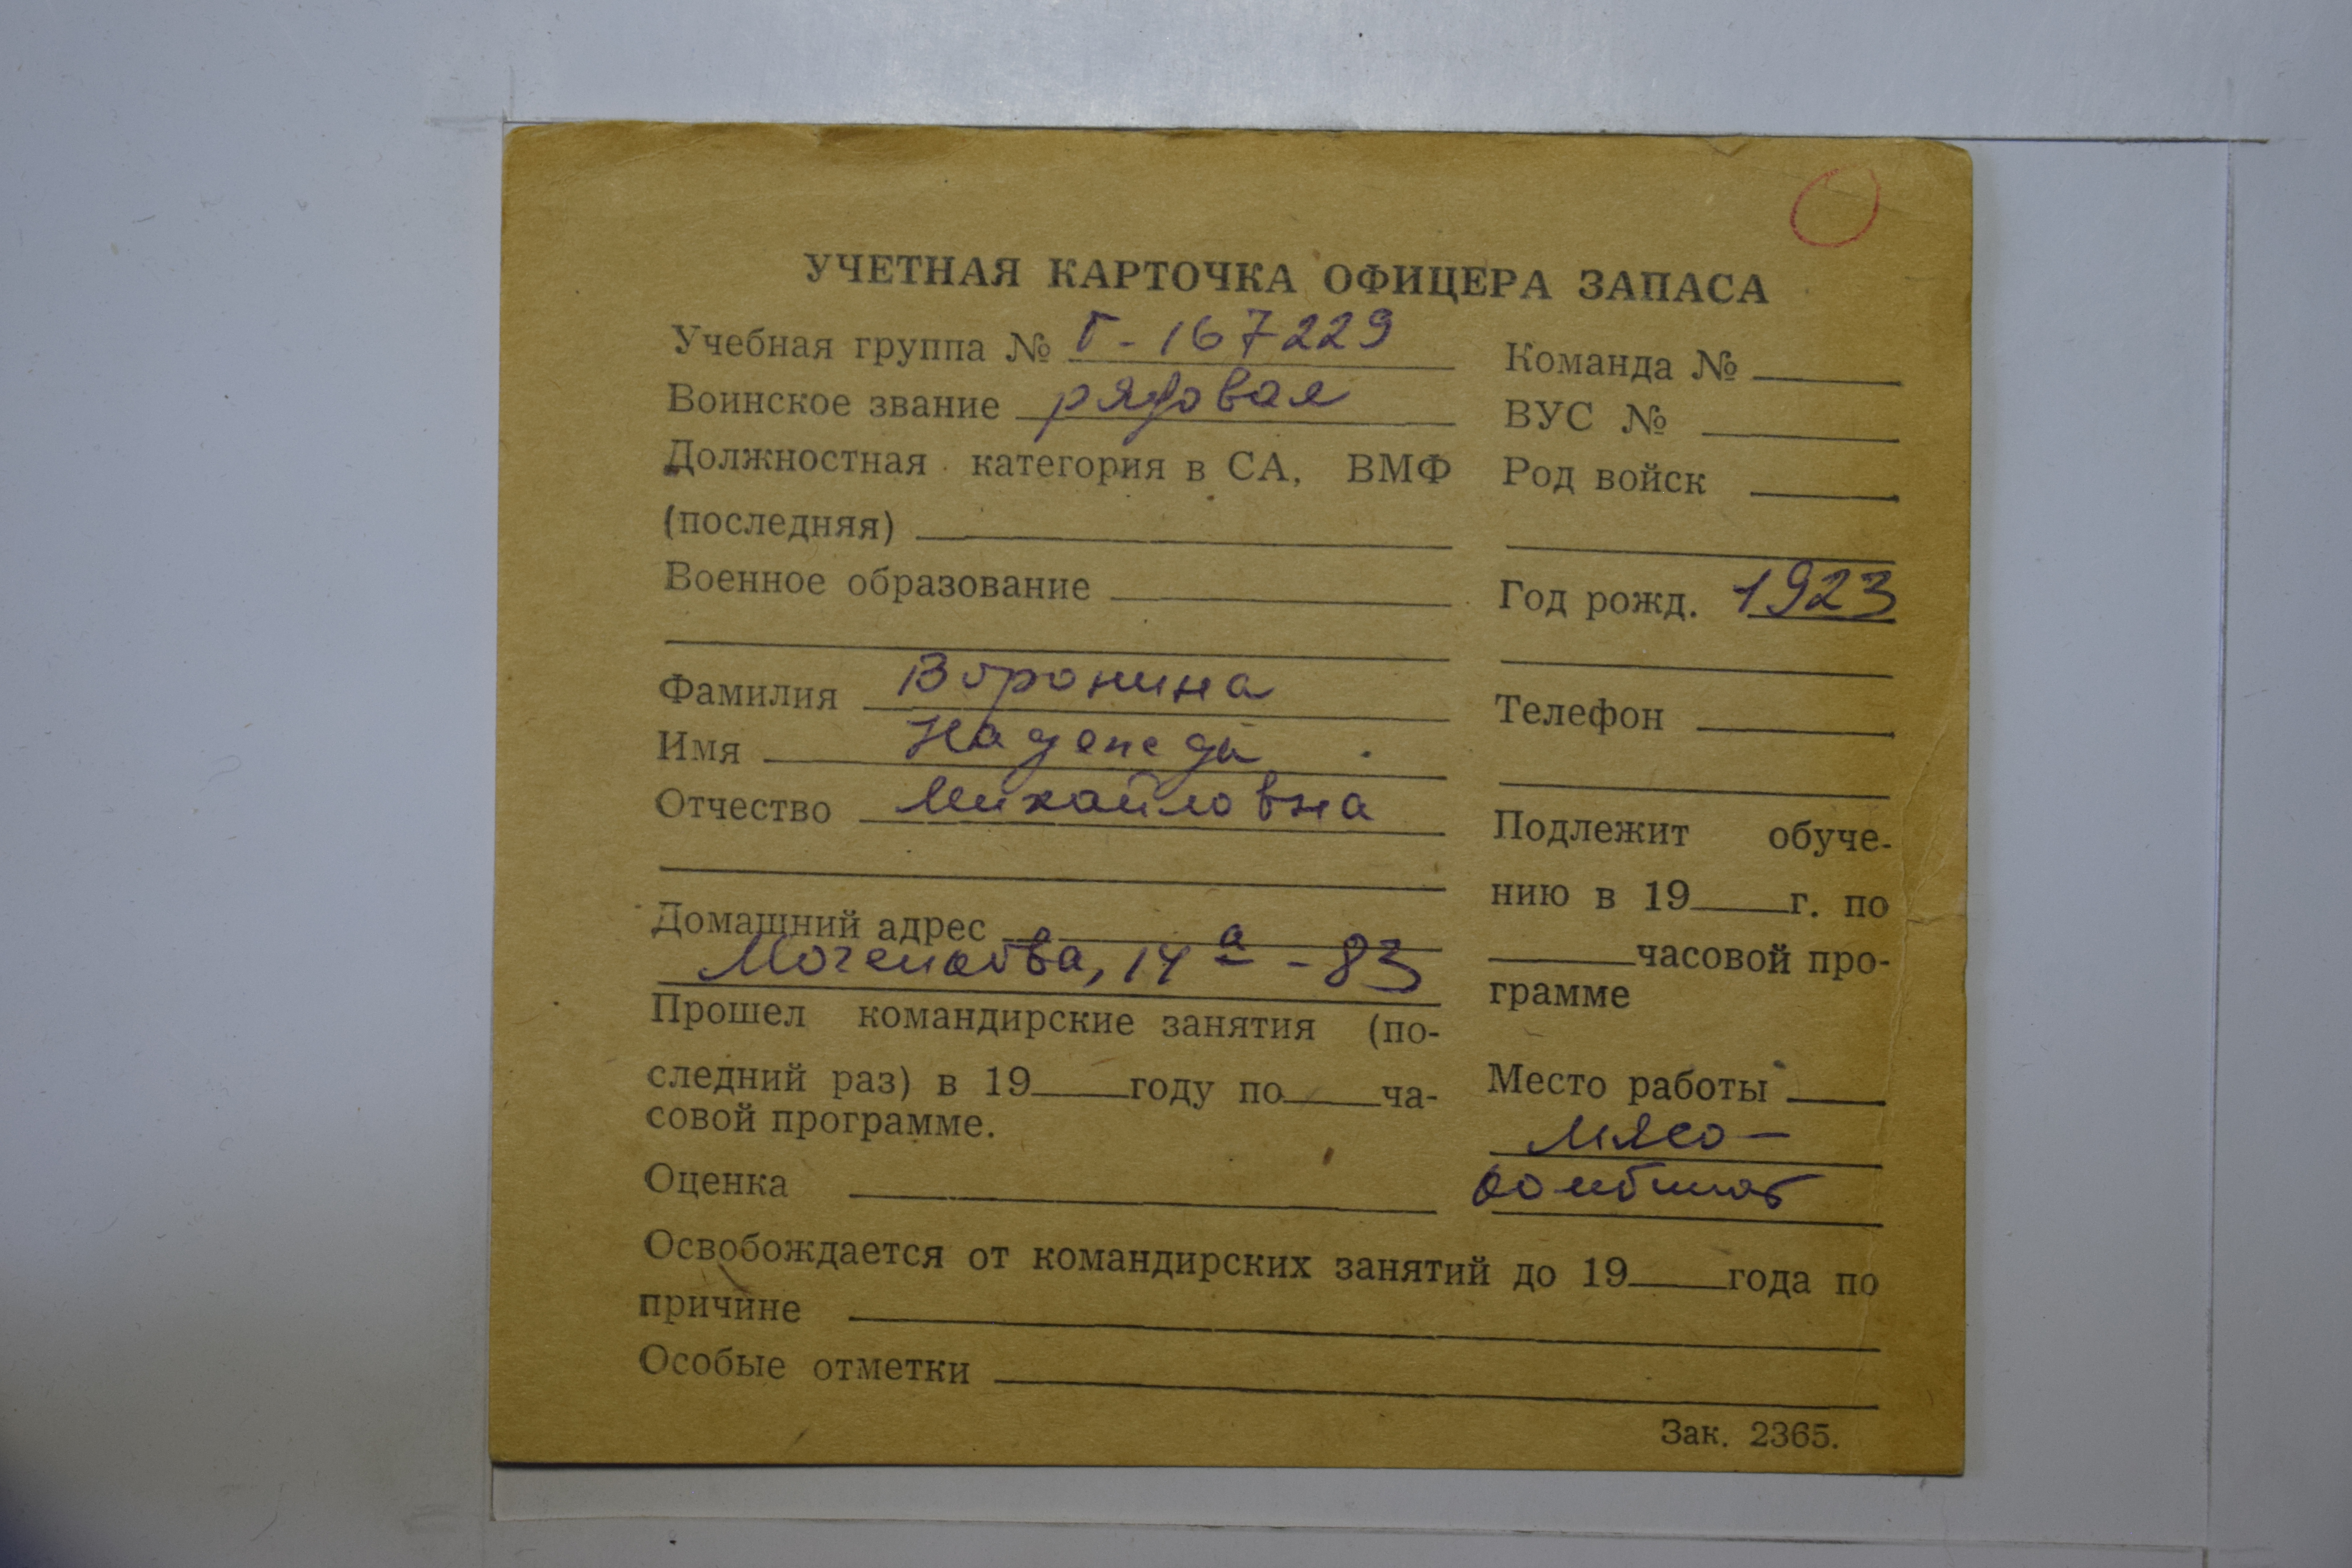 УЧЕТНАЯ КАРТОЧКА ОФИЦЕРА ЗАПАСА
Учебная группа № Г-167229
Воинское звание рядовая
Должностная категория в СА, ВМФ
(последняя)
Военное образование
Фамилия Воронина
Имя Надежда
Отчество Михайловна
Домашний адрес
14а - 83
Прошел командирские занятия (по-
следний раз) в 19 году по ча-
совой программе.
Оценка
Команда №
ВУС №
Род войск
Год рожд. 1923
Телефон
Подлежит обуче-
нию в 19 г. по
часовой про-
грамме
Место работы
мясо-
комбинат
Освобождается от командирских занятий до 19 года по
причине
Особые отметки
Зак. 2365.